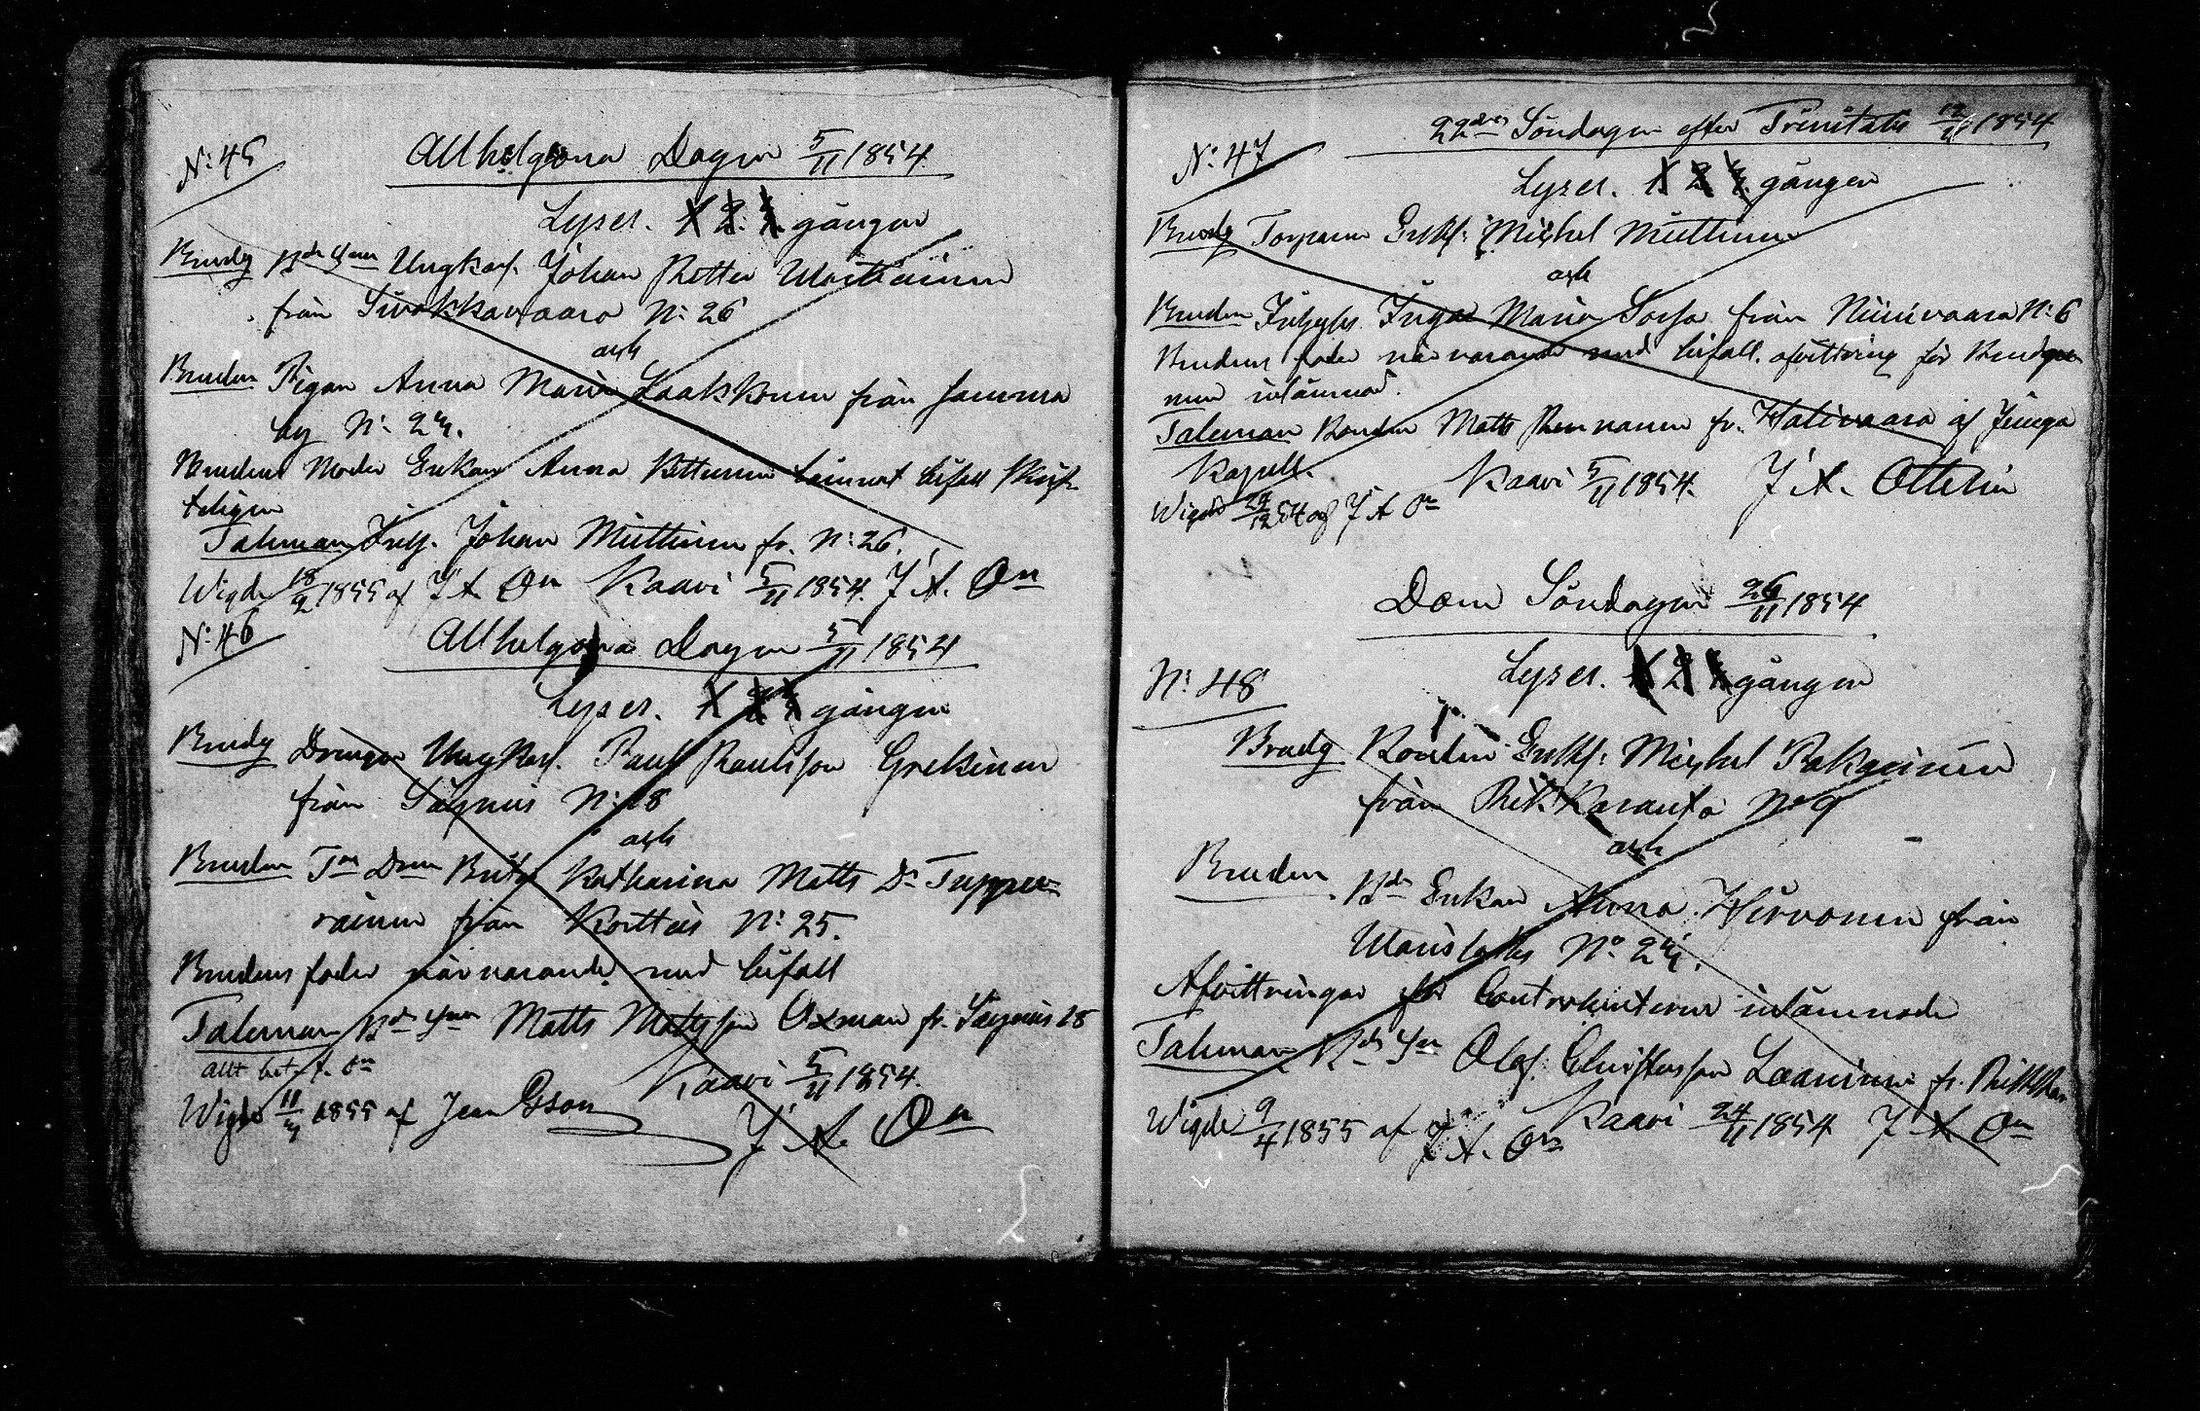 N: 45
Allhelgona Dagen 5/11 1854
Lyses. 1. 2. 3. gången
Brudg Bde Son Ungkarl. Johan Petter
från Sivakkavaara N: 26
och
Bruden Pigan Anna Maria Laakkonen från samma
by N: 23.
Brudens Moder Enkan Anna lämnat bifall skrif-
teligen
Taleman Johan Miettinen fr. N: 26.
Wigde 18/2 1855 af J A On Kaavi 5/11 1854. J. A. On
N: 46
Allhelgona Dagen 5/11 1854
Lyses. 1 2 3 gången
Brudg Drängen Ungkarl. Paul Paulsson
från Säynäis N: 18
och
Bruden Brita Katharina Matts Dr Tuppu-
rainen från Kortteis N: 25.
Brudens fader närvarande med bifall
Taleman Bde Son Matts Matsson Oxman fr. Säynäis 28
Wigde 11/3 1855 af Kaavi 5/11 1854.
J. A. On
N: 47
22dra Söndagen efter Trinitatis 12/11 1854
Lyses. 1. 2 3. gången
Brudg Torparen Enkl: Michel Miettinen
och
Bruden Inga Maria Sorsa från Niinivaara N: 6
Brudens fader närvarande med bifall. afvittring för Brudgum-
men inlämnad.
Taleman Bonden Matts Pennanen fr. Halivaara af Juuga
Kapell. Kaavi 5/11 1854. J. A. Ottelin
Wigde 24/12 54 af J A On
Dom Söndagen 26/11 1854
Lyses. 1 2 3 gången
N: 48
Brudg Bonden Enkl: Michel Pakarinen
från Rikkaranta No 9
och
Bruden Bde Enkan Anna Hirvonen från
No 23.
Afvittringar för Contrahenterne inlämnade
Taleman Bde Son Olof Christersson Laaninen fr. Rikkka.
Wigde 9/4 1855 af J. A. On Kaavi 24/11 1854 J A On